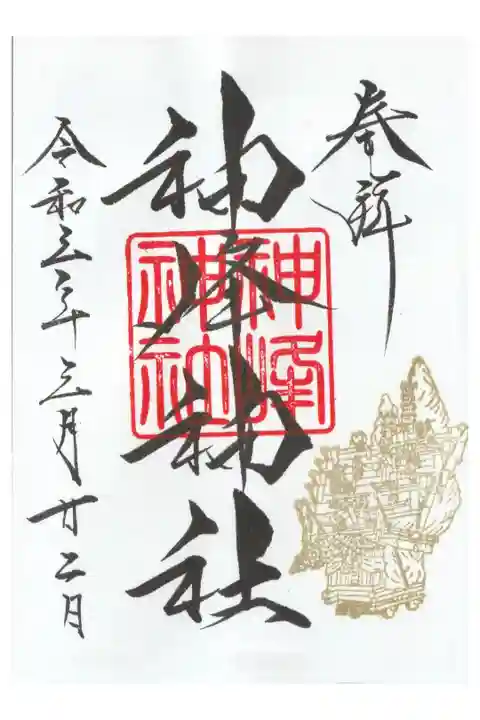 奉拝
神峰神社
神峰
神社
令和三年三月廿二日